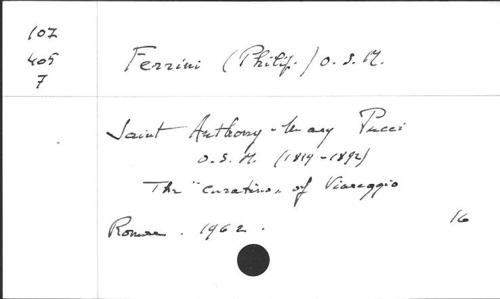 107
405
7
Ferrini (Philip.) O.S.M.
Saint Anthony-Mary Pucci
O.S.M. (1819-1892)
The "curatino" of Viareggio
Rome. 1962.
16